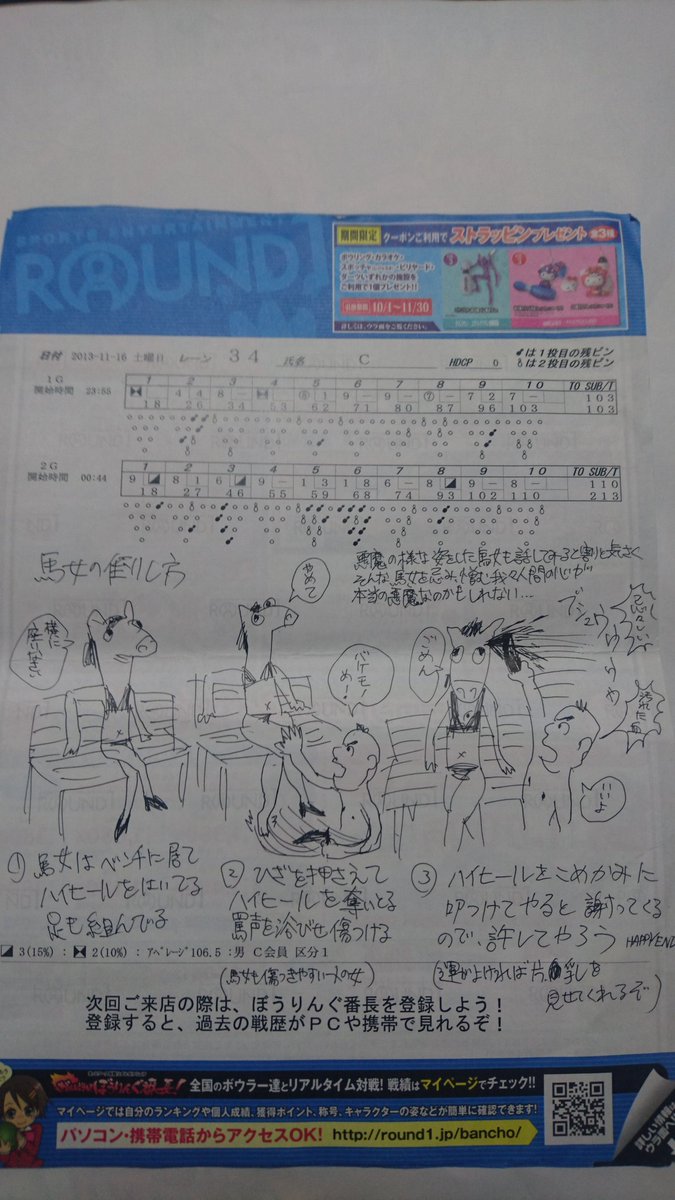 SPORTS ENTERTAINMENT
ROUND1
期間限定 クーポンご利用で ストラッピンプレゼント 全3種
ボウリング・カラオケ・
スポッチャ・ビリヤード・
ダーツいずれかの施設を
ご利用で1個プレゼント!!
10/1〜11/30
詳しくは、ウラ面をご覧ください。
日付 2013-11-16 土曜日 レーン 34 氏名 C HDCP 0
は1投目の残ピン
は2投目の残ピン
1G 1 2 3 4 5 6 7 8 9 10 TO SUB/T
開始時間 23:55 4 4 8 - - ⑧ 1 9 - 9 - 8 - ⑦ - 7 2 7 - 103
18 26 34 53 62 71 80 87 96 103 103
2G 1 2 3 4 5 6 7 8 9 10 TO SUB/T
開始時間 00:44 9 8 1 6 9 - 1 3 1 8 6 - 8 9 - 8 - 110
18 27 46 55 59 68 74 93 102 110 213
馬女の倒し方
悪魔の様な姿をした馬女も話してみると割と気さく
そんな馬女を忌み、憎む我々人間の心が
本当の悪魔なのかもしれない…
横に
座りなさい
やめて
バケモノ
め!
ごめん
ブシュウ
忌々しい
いいよ
① 馬女はベンチに居て
ハイヒールをはいてる
足も組んでる
② ひざを押さえて
ハイヒールを奪いとる
罵声を浴びせ傷つける
(馬女も傷つきやすい一人の女)
③ ハイヒールをこめかみに
叩つけてやると謝ってくる
ので、許してやろう HAPPYEND
(運がよければ片乳を
見せてくれるぞ)
3(15%) : 2(10%) : アベレージ106.5 :男 C会員 区分1
次回ご来店の際は、ぼうりんぐ番長を登録しよう!
登録すると、過去の戦歴がPCや携帯で見れるぞ!
ぼうりんぐ番長! 全国のボウラー達とリアルタイム対戦! 戦績はマイページでチェック!!
マイページでは自分のランキングや個人成績、獲得ポイント、称号、キャラクターの姿などが簡単に確認できます!
パソコン・携帯電話からアクセスOK! http://round1.jp/bancho/